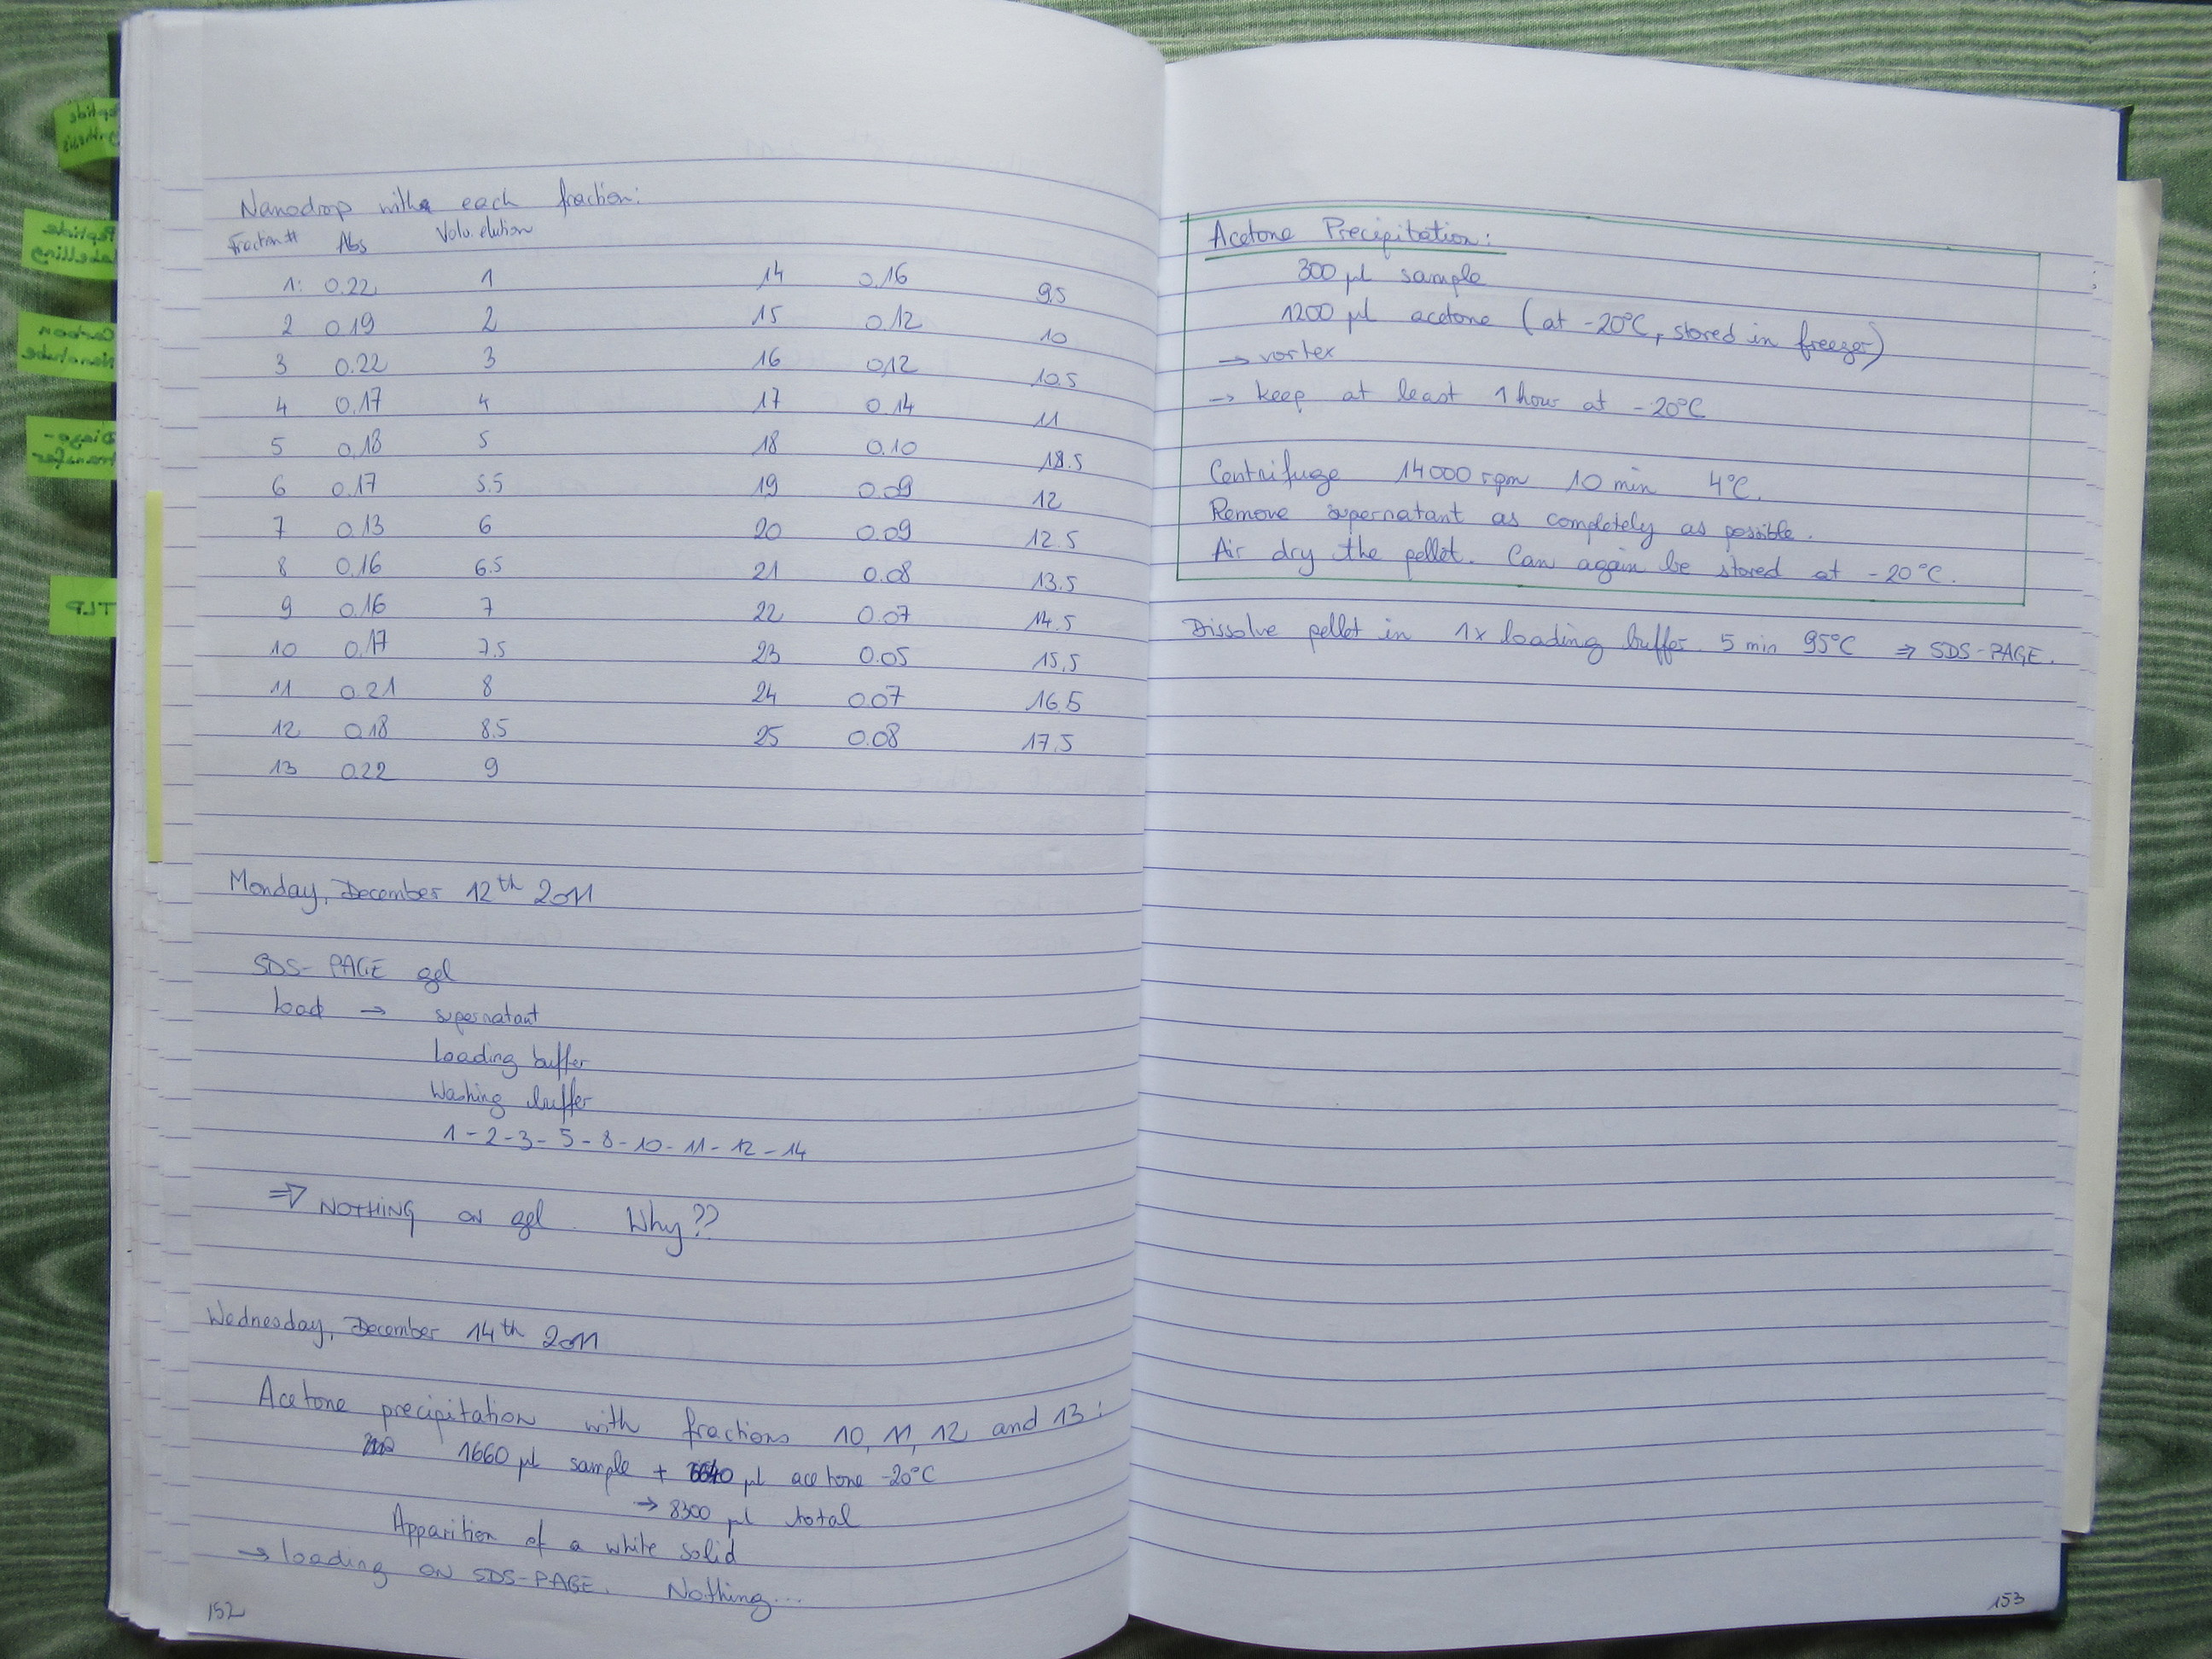 Nanodrop with each fraction:
Fraction# Abs Volu. elution
1: 0.22 1
2 0.19 2
3 0.22 3
4 0.17 4
5 0.18 5
6 0.17 5.5
7 0.13 6
8 0.16 6.5
9 0.16 7
10 0.17 7.5
11 0.21 8
12 0.18 8.5
13 0.22 9
14 0.16 9.5
15 0.12 10
16 0.12 10.5
17 0.14 11
18 0.10 18.5
19 0.09 12
20 0.09 12.5
21 0.08 13.5
22 0.07 14.5
23 0.05 15.5
24 0.07 16.5
25 0.08 17.5
Monday, December 12th 2011
SDS-PAGE gel
load → supernatant
Loading buffer
Washing buffer
1-2-3-5-8-10-11-12-14
⇒ NOTHING ON gel. Why??
Wednesday, December 14th 2011
Acetone precipitation with fractions 10, 11, 12 and 13:
1660 µl sample + 6640 µl acetone -20°C
→ 8300 µl total
Apparition of a white solid
→ loading ON SDS-PAGE. Nothing...
152
Acetone Precipitation:
300 µl sample
1200 µl acetone (at -20°C, stored in freezer)
→ vortex
→ keep at least 1 hour at -20°C
Centrifuge 14000 rpm 10 min 4°C.
Remove supernatant as completely as possible.
Air dry the pellet. Can again be stored at -20°C.
Dissolve pellet in 1x loading buffer. 5 min 95°C ⇒ SDS-PAGE.
153
Peptide
Synthesis
Peptide
Labelling
Carbon
Nanotube
Diazo-
transfer
TLP